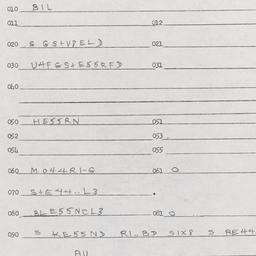 010 BIL
011 012
020 S GS+VPEL3 021
030 U4FGS+E55RFD 031
040
050 HE55RN 051
052 053
054 055
060 MO44RI-G 061 O
070 S+E44..L3
080 BLE55NCL3 081 O
090 S KE55ND RI..BD SIX8 S RE44